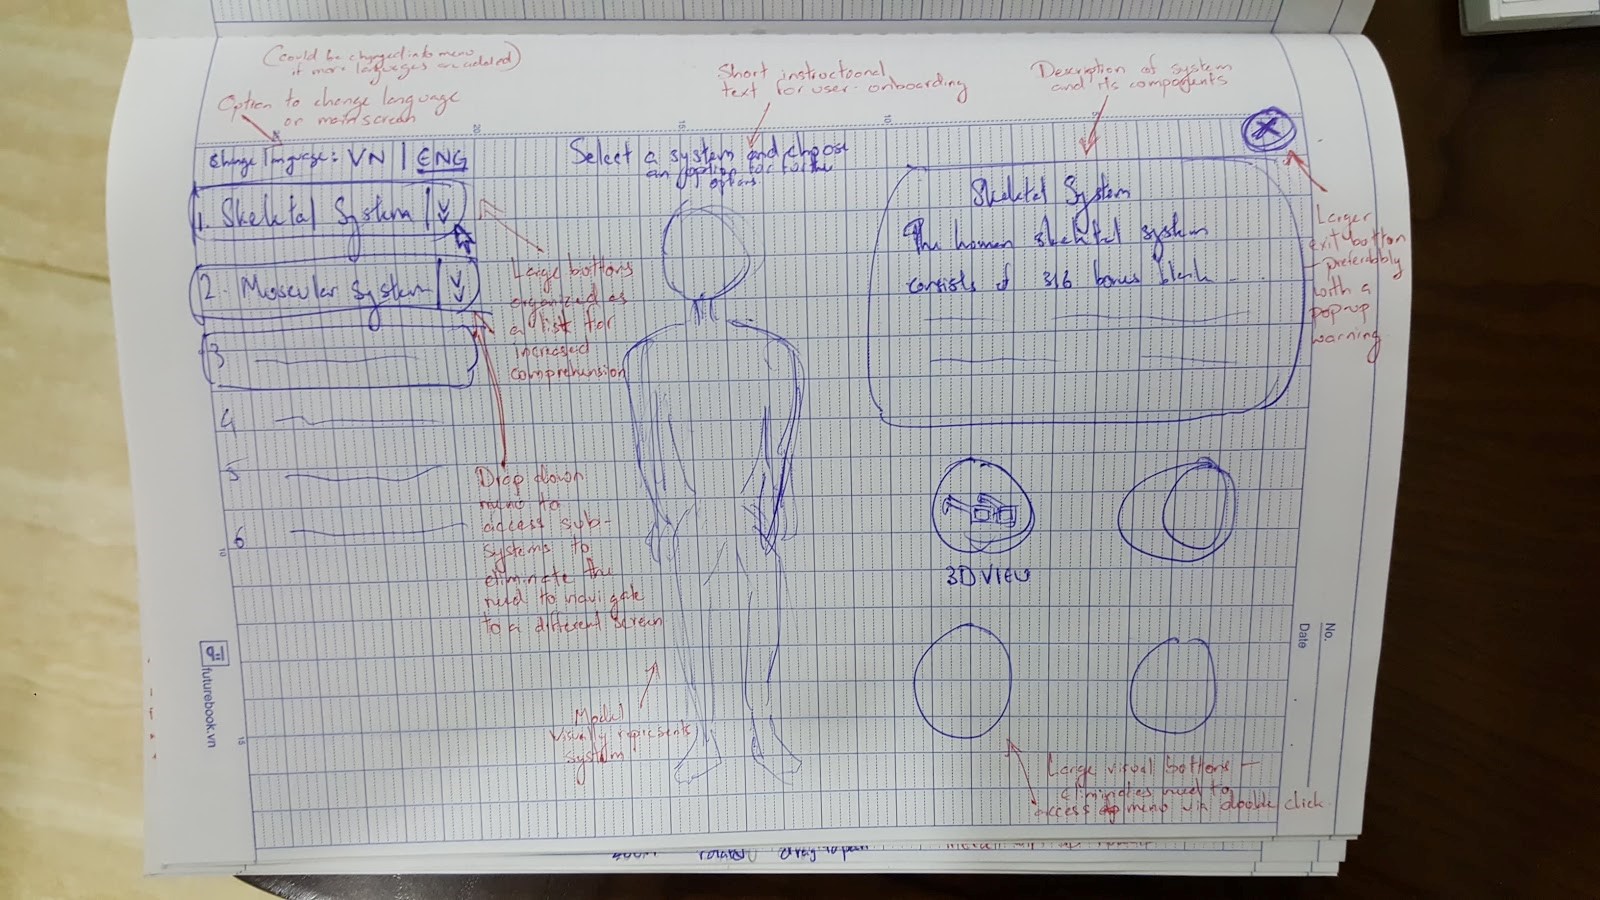 (Could be changed into menu
if more languages are added)
Option to change language
on main screen
Short instructional
text for user onboarding
Description of system
and its components
Change language: VN | ENG
Select a system and choose
an option for further
options.
X
1. Skeletal System
2. Muscular System
3
4
5
6
Large buttons
organized as
a list for
increased
comprehension
Drop down
menu to
access sub-
systems to
eliminate the
need to navigate
to a different screen
Model
visually represents
system
Skeletal System
The human skeletal system
consists of 316 bones blah - -
Larger
exit button
- preferably
with a
pop-up
warning
3D VIEW
Large visual buttons -
eliminates need to
access menu via double click.
20
15
10
10
15
No.
Date
FB
futurebook.vn